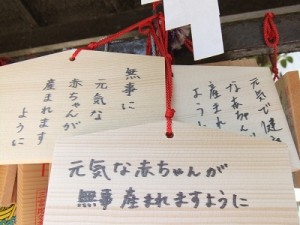 無事に
元気な
赤ちゃんが
産まれます
ように
元気で健
な赤ちゃん
産まれ
ように
元気な赤ちゃんが
無事産まれますように